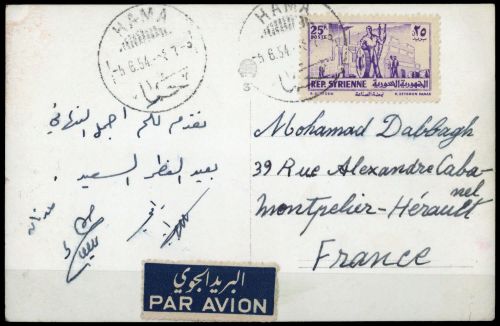 HAMA
5.6.54
حماه
HAMA
5.6.54
25P
POSTES
٢٥
REP. SYRIENNE
الجمهورية السورية
نقدم لكم أجمل التهاني
بعيد الفطر السعيد.
عدنان
Mohamad Dabbagh
39 Rue Alexandre Caba-
nel
Montpelier-Hérault
France
البريد الجوي
PAR AVION